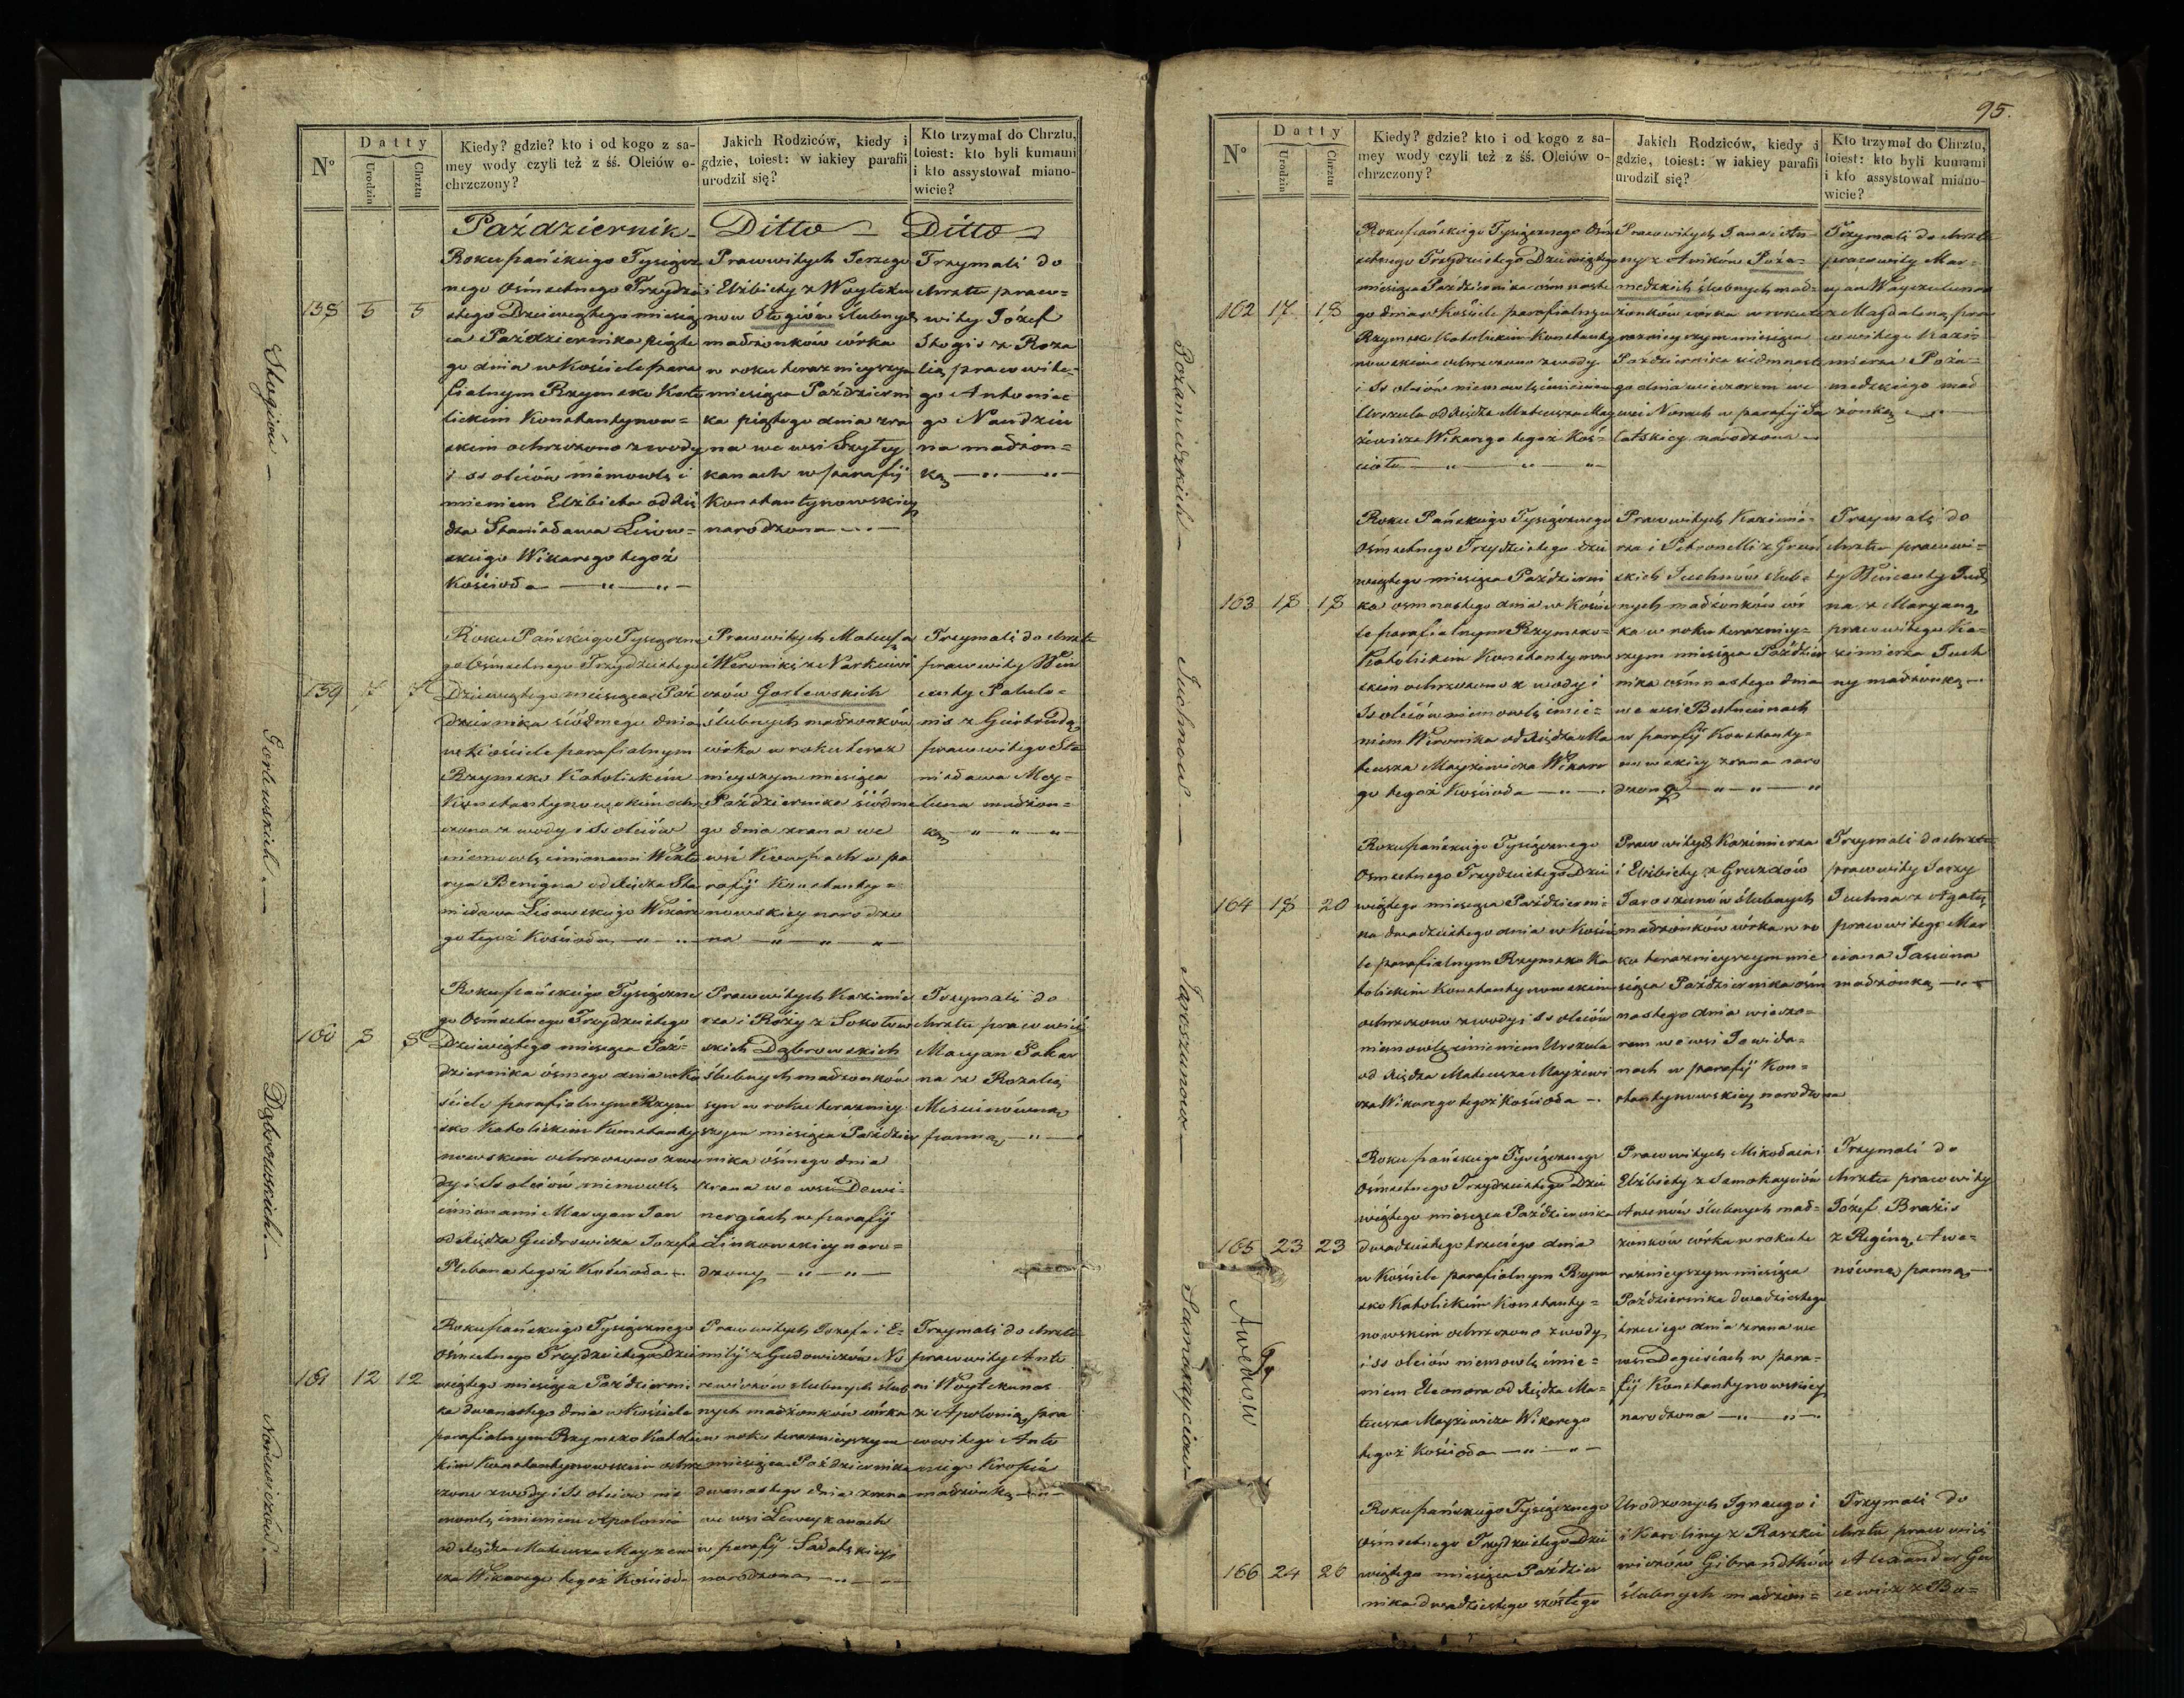 N°
Datty
Urodzin
Chrztu
Kiedy? gdzie? kto i od kogo z sa-
mey wody czyli też z śś. Oleiów o-
chrzczony?
Jakich Rodziców, kiedy i
gdzie, toiest: w iakiey parafii
urodził się?
Kto trzymał do Chrztu,
toiest: kto byli kumami
i kto assystował miano-
wicie?
Październik
Ditto
Ditto
158 5 5
Roku pańskiego Tysiącz
nego Ośmsetnego Trzydzie
stego Dziewiątego miesią
ca Października piąte
go dnia w Kościele para
fialnym Rzymsko Kato
lickim Konstantynow=
skim ochrzczono z wody
i ss oleiów niemowlę i
mieniem Elżbieta od Xię
dza Stanisława Lisow=
skiego Wikarego tegoż
Kościoła
Pracowitych Jerzego
i Elżbiety z Woyteku
now Stogiów ślubnych
małżonków córka
w roku teraznieyszym
miesiąca Październi
ka piątego dnia zra
na we wsi
kanach w parafij
Konstantynowskiey
narodzona
Trzymali do
chrztu praco=
wity Józef
Stogis z Roza
lią pracowite=
go Antonie
go
na małżon=
ką
Stogiów
159 7 7
Roku Pańskiego Tysiączne
go Ośmsetnego Trzydziestego
Dziewiątego miesiąca Paź
dziernika siódmego dnia
w Kościele parafialnym
Rzymsko Katolickim
Konstantynowskim ochrz
czono z wody i ss oleiów
niemowlę imionami Wikto
rya Benigna od Xiędza Sta
nisława Lisowskiego Wikare
go tegoż Kościoła
Pracowitych Mateusza
i Weroniki z Narkiewi
czów Gorlewskich
ślubnych małżonków
córka w roku teraz
nieyszym miesiąca
Października siódme
go dnia zrana we
wsi w pa
rafij Konstanty=
nowskiey narodzo
na
Trzymali do chrztu
pracowity Win
centy
nis z Giertrudą
pracowitego Sta
nisława Mey=
luna małżon=
ką
Gorlewskich
160 8 8
Roku pańskiego Tysiączne
go Ośmsetnego Trzydziestego
Dziewiątego miesiąca Paź=
dziernika ósmego dnia w Ko
ściele parafialnym Rzym
sko Katolickim Konstanty
nowskim ochrzczono z wo
dy i ss oleiów niemowlę
imionami Maryan Jan
od Xiędza Gudrowicza Józefa
Plebana tegoż Kościoła
Pracowitych Kazimie
rza i Róży z Sokołow
skich Dąbrowskich
ślubnych małżonków
syn w roku terazniey
szym miesiąca Paździer
nika ósmego dnia
zrana we wsi Dowi=
nergiach w parafij
Linkowskiey naro=
dzony
Trzymali do
chrztu pracowity
Maryan
na z Rozalią
panną
Dąbrowskich
161 12 12
Roku pańskiego Tysiącznego
Ośmsetnego Trzydziestego Dzie
wiątego miesiąca Październi
ka dwunastego dnia w Kościele
parafialnym Rzymsko Katolic
kim Konstantynowskim ochrz
czono z wody i ss oleiów nie
mowlę imieniem Apolonia
od Xiędza Mateusza Mayzewi
cza Wikarego tegoż Kościoła
Pracowitych Józefa i E=
milij z Gudowiczów No
rewiczów ślubnych ślub
nych małżonków córka
w roku teraznieyszym
miesiąca Października
dwunastego dnia zrana
we wsi
w parafij Sałatskiey
narodzona
Trzymali do chrztu
pracowity Anto
ni Woytekunas
z Apolonią pra
cowitego Anto
niego
małżonką
Norewiczów
95.
N°
Datty
Urodzin
Chrztu
Kiedy? gdzie? kto i od kogo z sa-
mey wody czyli też z śś. Oleiów o-
chrzczony?
Jakich Rodziców, kiedy i
gdzie, toiest: w iakiey parafii
urodził się?
Kto trzymał do Chrztu,
toiest: kto byli kumami
i kto assystował miano-
wicie?
162 17 18
Roku pańskiego Tysiącznego Ośm
setnego Trzydziestego Dziewiątego
miesiąca Października ośmnaste
go dnia w Kościele parafialnym
Rzymsko Katolickim Konstanty
nowskim ochrzczono z wody
i ss oleiów niemowlę imieniem
Urszula od Xiędza Mateusza May
zewicza Wikarego tegoż Koś=
cioła
Pracowitych Jana i An=
ny z Poża=
niedzkich ślubnych mał=
żonków córka w roku te
raznieyszym miesiąca
Października siedmnaste
go dnia wieczorem we
wsi Norach w parafij Sa
łatskiey narodzona
Trzymali do chrztu
pracowity Mar=
cyan
z Magdaleną pra
cowitego Kazi=
mierza Poża=
niedzkiego mał
żonką
Pożaniedzkich
163 18 18
Roku Pańskiego Tysiącznego
Ośmsetnego Trzydziestego Dzie
wiątego miesiąca Październi
ka ośmnastego dnia w Koście
le parafialnym Rzymsko=
Katolickim Konstantynow
skim ochrzczono z wody i
ss oleiów niemowlę imie=
niem Weronika od Xiędza Ma
teusza Mayzewicza Wikare
go tegoż Kościoła
Pracowitych Kazimie=
rza i Petronelli z
skich Juchnów ślub=
nych małżonków cór
ka w roku terazniey=
szym miesiąca Paździer
nika ośmnastego dnia
we wsi
w parafij Konstanty=
nowskiey zrana naro
dzona
Trzymali do
chrztu pracowi=
ty Wincenty Juch
na z Maryaną
pracowitego Ka=
zimierza Juch
ny małżonką
Juchnow
164 18 20
Roku pańskiego Tysiącznego
Ośmsetnego Trzydziestego Dzie
wiątego miesiąca Październi=
ka dwudziestego dnia w Koście
le parafialnym Rzymsko Ka
tolickim Konstantynowskim
ochrzczono z wody i ss oleiów
niemowlę imieniem Urszula
od Xiędza Mateusza Mayzewi
cza Wikarego tegoż Kościoła
Pracowitych Kazimierza
i Elżbiety z Gruzdów
Jaroszunów ślubnych
małżonków córka w ro
ku teraznieyszym mie
siąca Października ośm
nastego dnia wieczo=
rem we wsi Jowida=
nach w parafij Kon=
stantynowskiey narodzona
Trzymali do chrztu
pracowity Jerzy
Juchna z Agatą
pracowitego Mar
ciana Jasiuna
małżonką
Jaroszunow
165 23 23
Roku pańskiego Tysiącznego
Ośmsetnego Trzydziestego Dzie
wiątego miesiąca Października
dwudziestego trzeciego dnia
w Kościele parafialnym Rzym
sko Katolickim Konstanty=
nowskim ochrzczono z wody
i ss oleiów niemowlę imie=
niem Eleonora od Xiędza Ma=
teusza Mayzewicza Wikarego
tegoż Kościoła
Pracowitych Mikołaia i
Elżbiety z Samokayciów
Awenów ślubnych mał=
żonków córka w roku te
raznieyszym miesiąca
Października dwudziestego
trzeciego dnia zrana we
wsi Degesiach w para=
fij Konstantynowskiey
narodzona
Trzymali do
chrztu pracowity
Józef Brażis
z Reginą Awe=
nówną panną
Samokayciow
Awenow
166 24 26
Roku pańskiego Tysiącznego
Ośmsetnego Trzydziestego Dzie
wiątego miesiąca Paździer
nika dwudziestego szóstego
Urodzonych Ignacego i
i Karoliny z Raszkie
wiczów Gibrandtków
ślubnych małżon=
Trzymali do
chrztu pracowity
Alexander